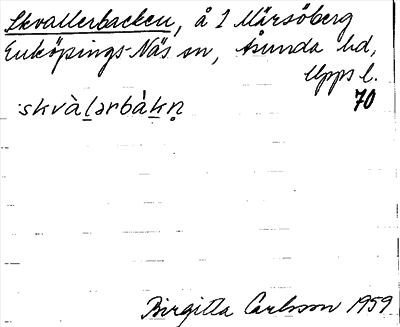 Skvallerbacken, å 1 Märsöberg
Enköpings-Näs sn, Åsunda hd,
Upps l.
skvàl̲ərbàk̲n̥
70
Birgitta Carlsson 1959